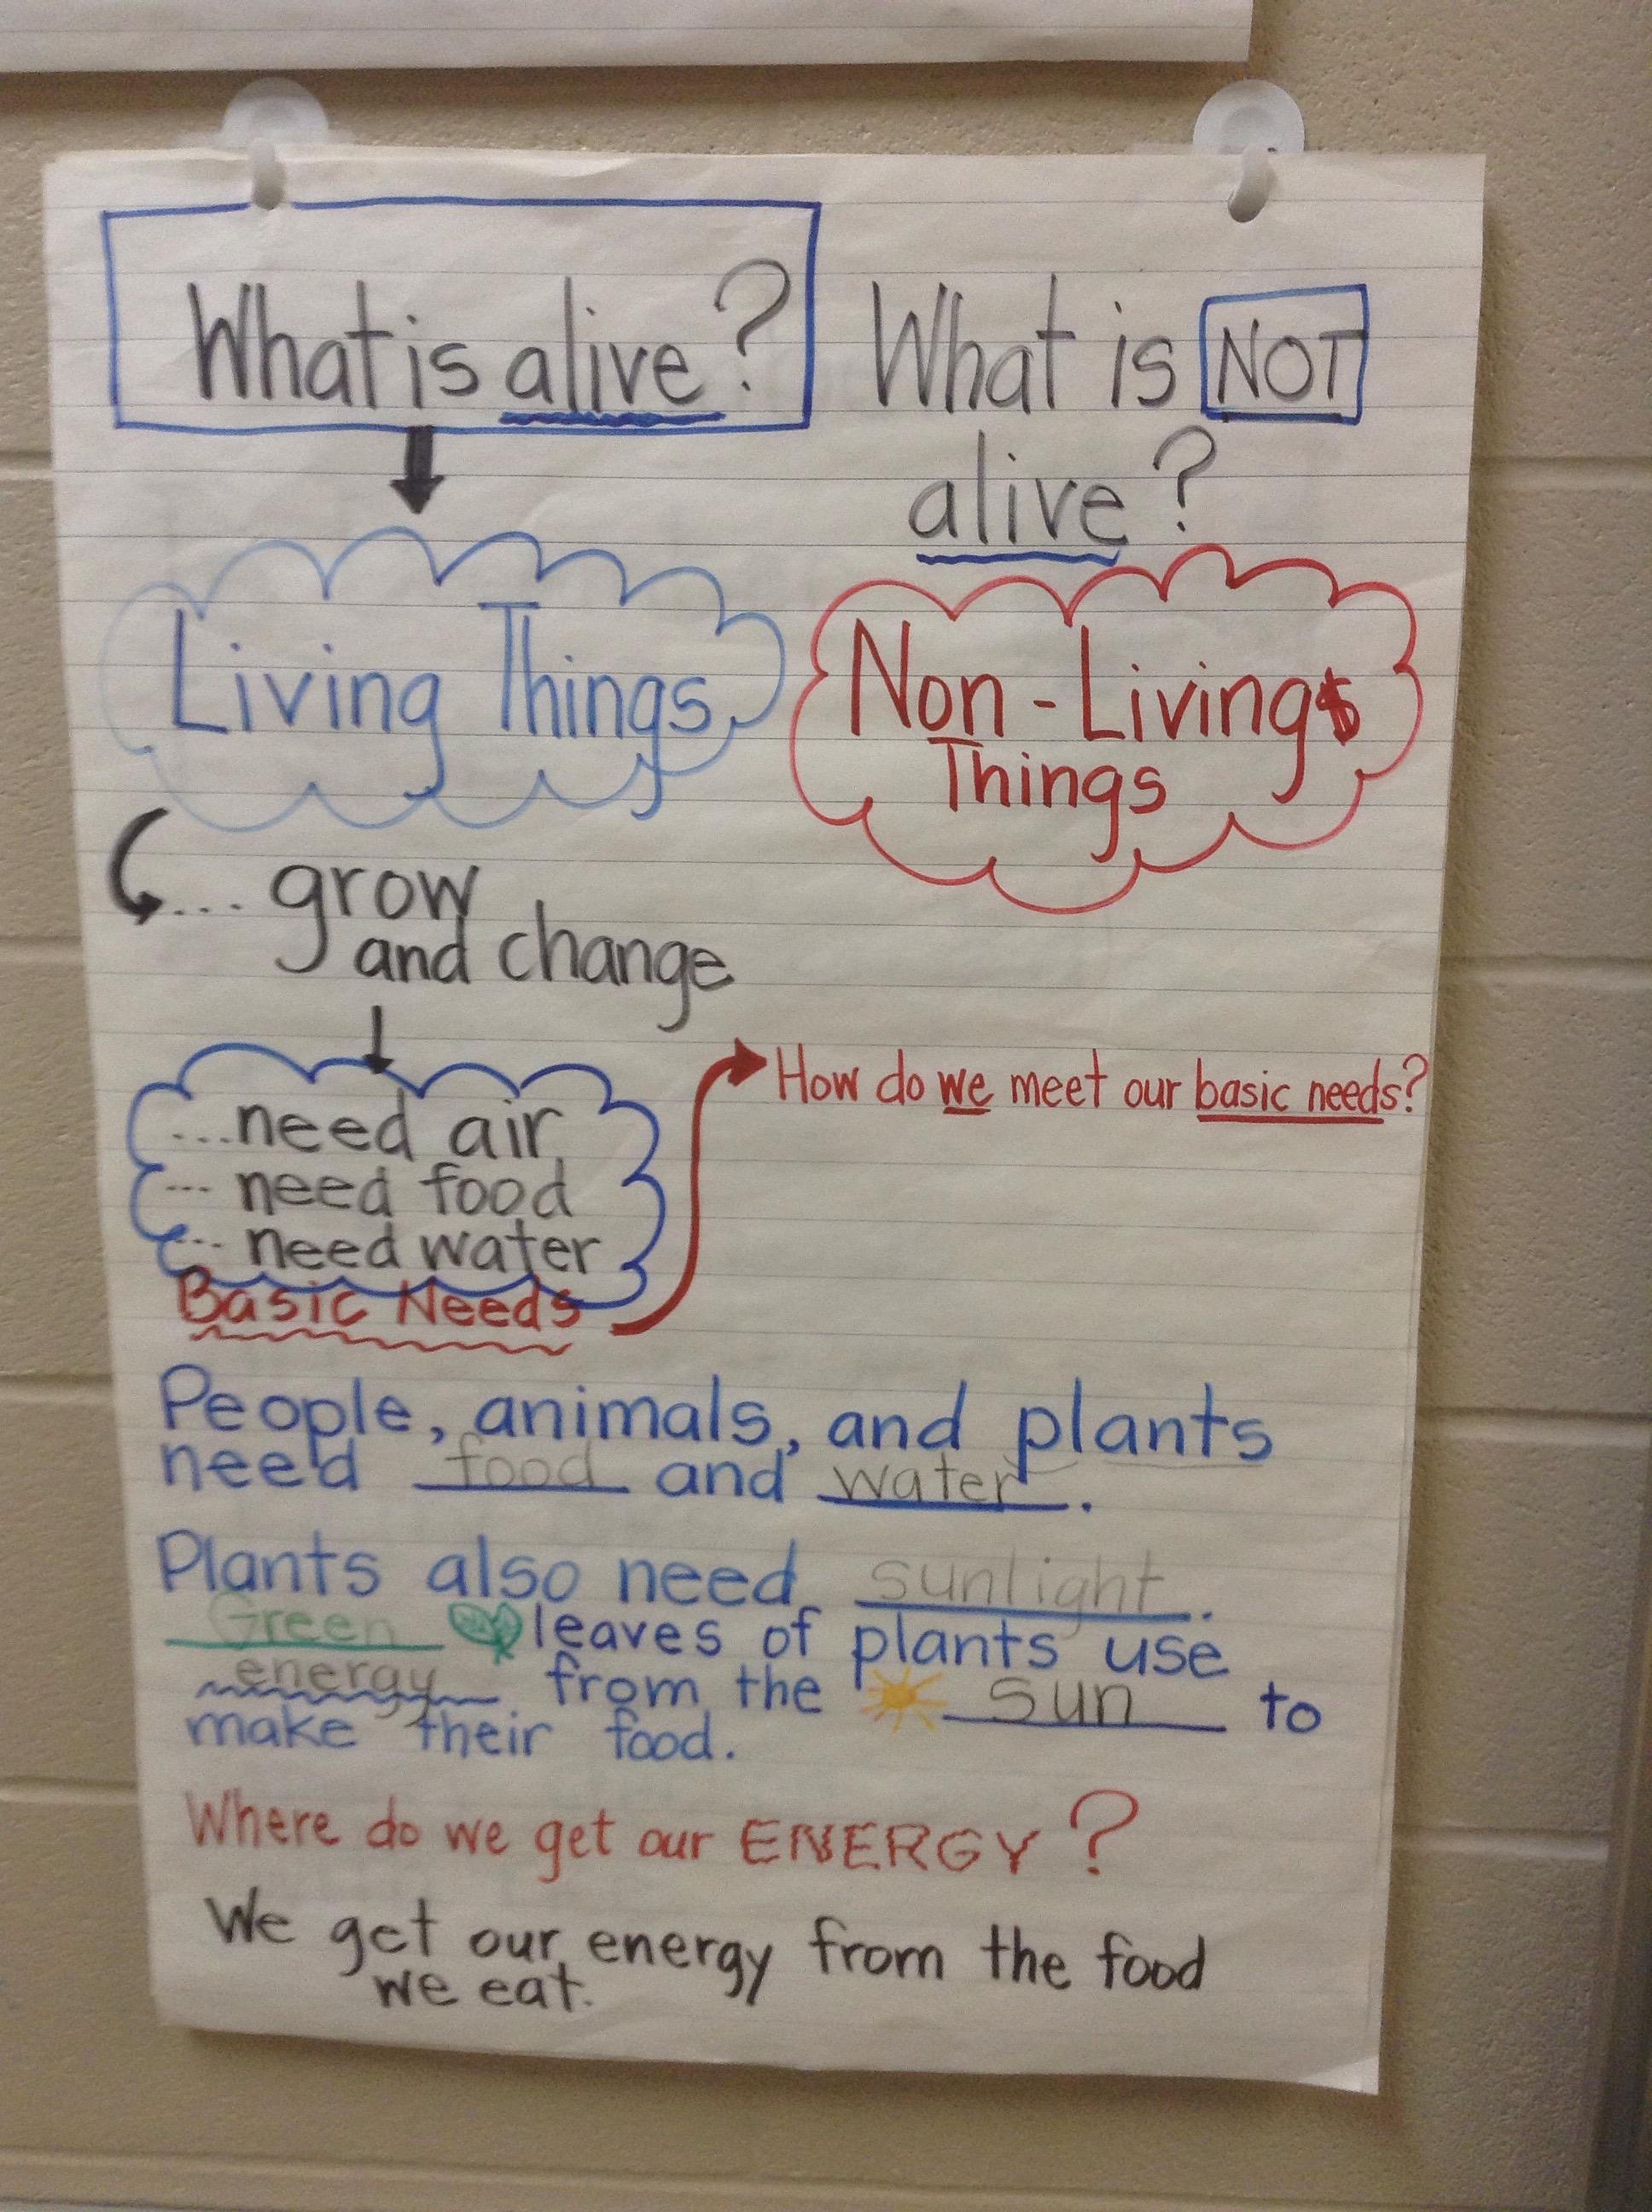 What is alive?
What is NOT
alive?
Living Things
Non-Living
Things
... grow
and change
...need air
... need food
... need water
Basic Needs
How do we meet our basic needs?
People, animals, and plants
need food and water.
Plants also need sunlight.
Green leaves of plants use
energy from the sun to
make their food.
Where do we get our ENERGY?
We get our energy from the food
we eat.